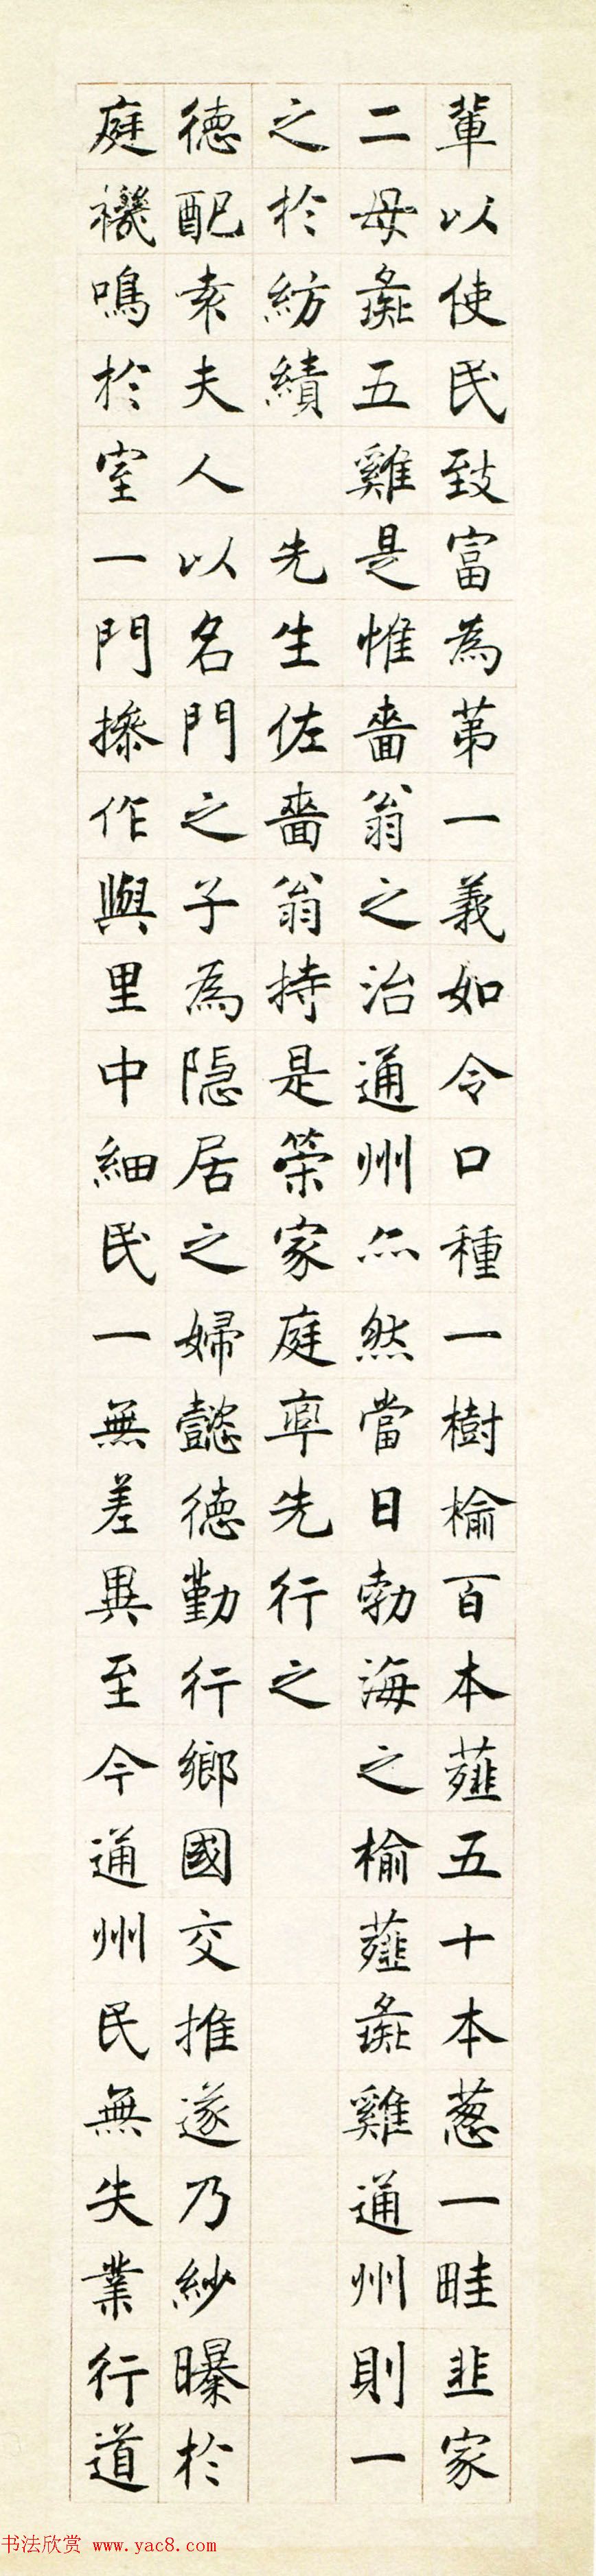 輩以使民致富為苐一義如令口種一樹榆百本薤五十本蔥一畦韭家
二母彘五雞是惟嗇翁之治通州亦然當日勃海之榆薤彘雞通州則一
之於紡績 先生佐嗇翁持是榮家庭率先行之
德配袁夫人以名門之子為隱居之婦懿德勤行鄉國交推遂乃紗曝於
庭機鳴於室一門操作與里中細民一無差異至今通州民無失業行道
书法欣赏 www.yac8.com